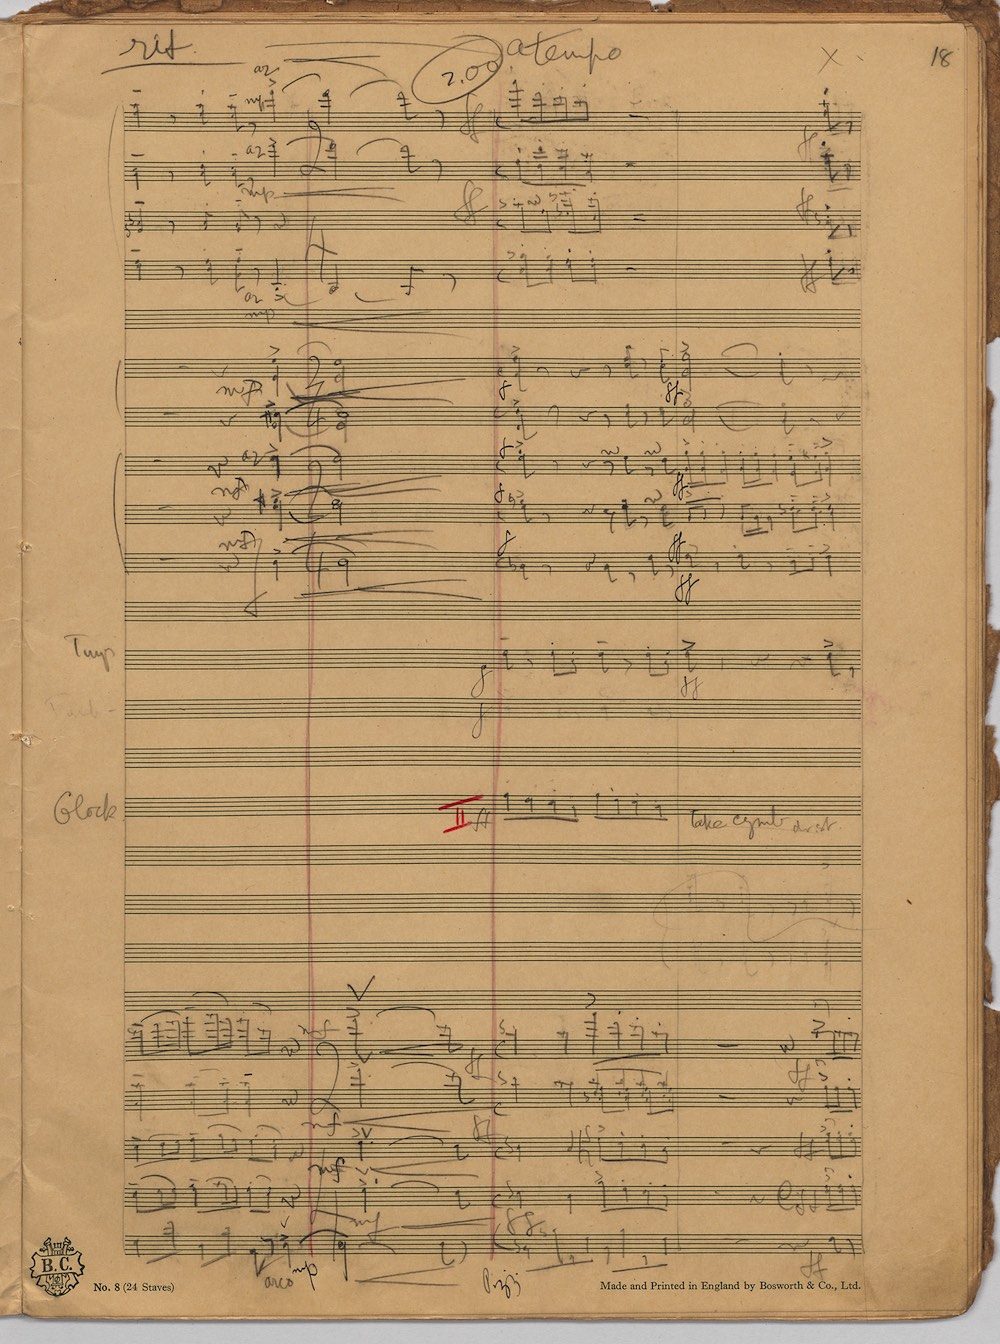 rit. 2.00 a tempo X 18
a2
mp
a2
ff
mp
ff
ff
ff
a2
mp
mf
f
ff
a2
mf
f
ff
mf
f
ff
f
ff
Timp
f
ff
f
Glock
II ff take cymb
mf
ff
ff
mf
ff
ff
mf
mf
ff
arco mp
Pizz
ff
B.C.
No. 8 (24 Staves)
Made and Printed in England by Bosworth & Co., Ltd.